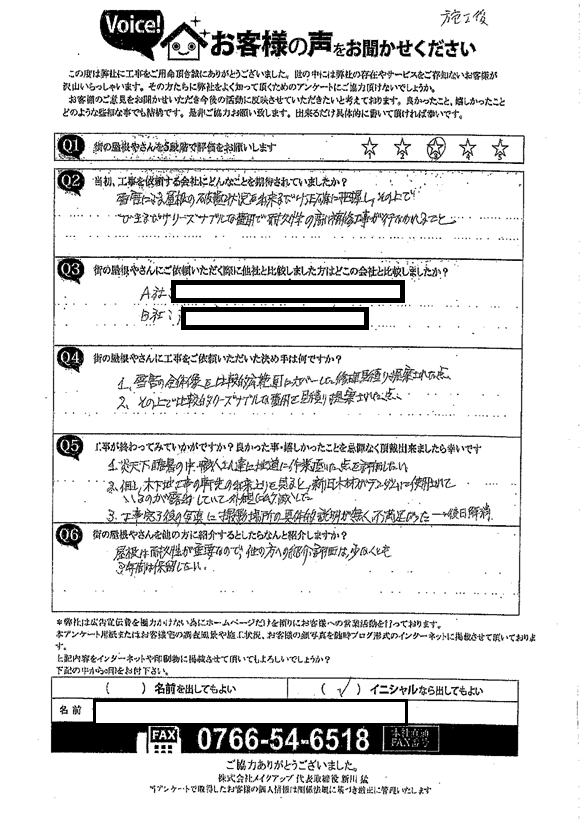 施工後
Voice!
お客様の声をお聞かせください
この度は弊社に工事をご用命頂き誠にありがとうございます。世の中には弊社の存在やサービスをご存知ないお客様が
沢山いらっしゃいます。その方たちに弊社をよく知って頂くためのアンケートにご協力頂けないでしょうか。
お客様のご意見をお聞かせいただき今後の活動に反映させていただきたいと考えております。良かったこと、嬉しかったこと
どのような些細な事でも結構です。是非ご協力お願い致します。出来るだけ具体的に書いて頂ければ幸いです。
Q1 街の屋根やさんを5段階で評価をお願いします
1 2 3 4 5
Q2 当初、工事を依頼する会社にどんなことを期待されていましたか?
雪害による屋根の破損状況を出来るだけ正確に把握し、その上で
リーズナブルな費用で耐久性の高い補修工事が行なわれること
Q3 街の屋根やさんにご依頼いただく際に他社と比較しました方はどこの会社と比較しましたか?
A社:
B社:
Q4 街の屋根やさんに工事をご依頼いただいた決め手は何ですか?
1、雪害の全体像を比較的綿密にカバーした修理見積り提案された点
2、その上で比較的リーズナブルな費用で見積り提案された点
Q5 工事が終わってみていかがですか?良かった事・嬉しかったことを忌憚なく頂戴出来ましたら幸いです
1.炎天下酷暑の中、職人さん達に地道に作業頂いた点を評価したい
2、但し、木下地工事の野地の出来上りを見ると、新旧木材がランダムに使用されて
いるのが露出していて外観に
3、工事完了後の写真に撮影場所の具体的説明が無く、不満足だった→後日解消
Q6 街の屋根やさんを他の方に紹介するとしたらなんと紹介しますか?
屋根は耐久性が重要なので、他の方への紹介評価は、少なくとも
3年間は保留したい。
*弊社は広告宣伝費を極力かけない為にホームページだけを頼りにお客様への営業活動を行っております。
本アンケート用紙またはお客様宅の調査風景や施工状況、お客様の顔写真を随時ブログ形式のインターネットに掲載させて頂いておりま
す。
上記内容をインターネットや印刷物に掲載させて頂いてもよろしいでしょうか?
下記の中から○印をお付下さい。
( )名前を出してもよい (✓)イニシャルなら出してもよい
名前
FAX 0766-54-6518 本社直通FAX番号
ご協力ありがとうございました。
株式会社メイクアップ 代表取締役 新川 猛
当アンケートで取得したお客様の個人情報は関係法規に基づき厳正に管理いたします